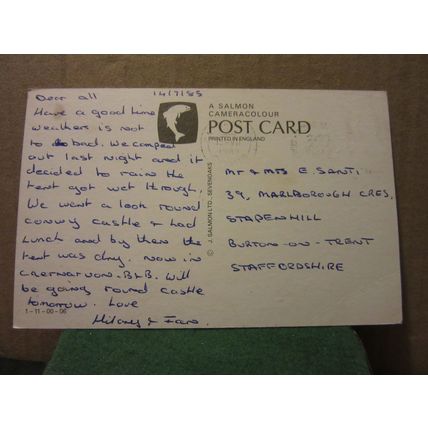 Dear all 14/7/85
Have a good time
weather is not
to bad. We camped
out last night and it
decided to rain the
tent got wet through.
We went a look round
conwy castle & had
lunch and by then the
tent was dry. Now in
caernarvon. B&B. Will
be going round castle
tomorrow. Love
Hilary &
1-11-00-06
A SALMON
CAMERACOLOUR
POST CARD
PRINTED IN ENGLAND
© J. SALMON LTD., SEVENOAKS
Mr & Mrs E. SANTI
39, MARLBOROUGH CRES,
STAPENHILL
BURTON-ON-TRENT
STAFFORDSHIRE